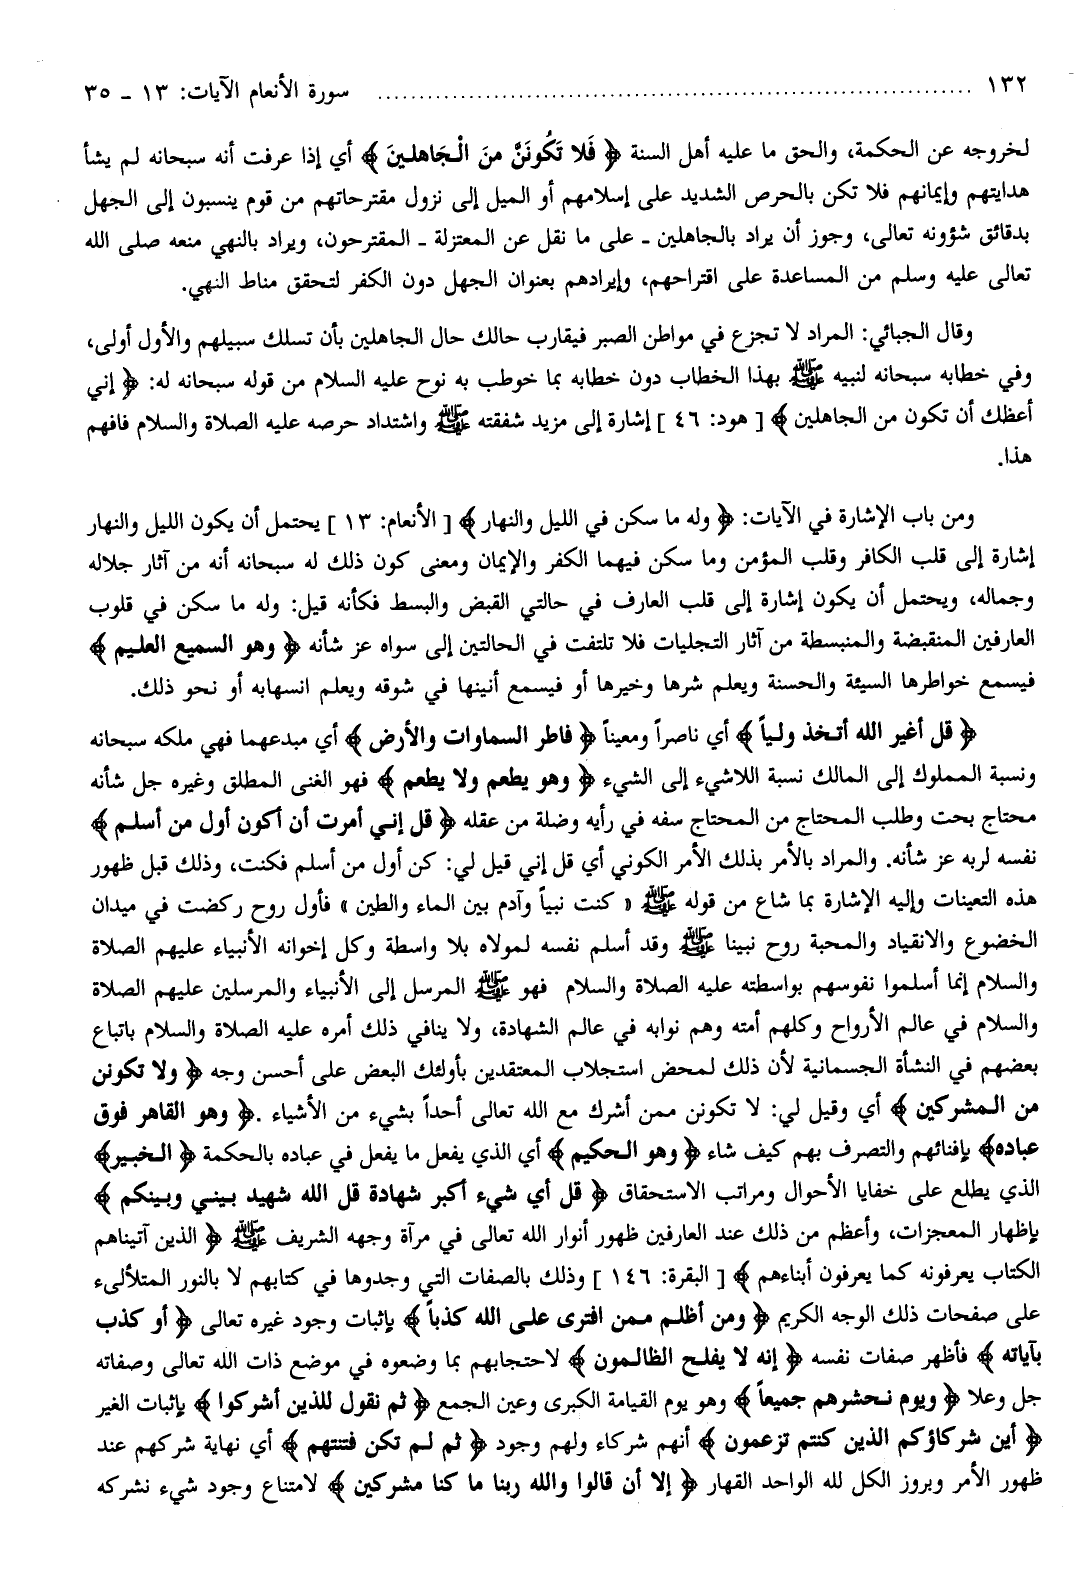 ١٣٢ ........................ سورة الأنعام الآيات: ١٣ ـ ٣٥
لخروجه عن الحكمة، والحق ما عليه أهل السنة ﴿ فَلا تَكُونَنَّ منَ الْجَاهلينَ ﴾ أي إذا عرفت أنه سبحانه لم يشأ
هدايتهم وإيمانهم فلا تكن بالحرص الشديد على إسلامهم أو الميل إلى نزول مقترحاتهم من قوم ينسبون إلى الجهل
بدقائق شؤونه تعالى، وجوز أن يراد بالجاهلين ـ على ما نقل عن المعتزلة ـ المقترحون، ويراد بالنهي منعه صلى الله
تعالى عليه وسلم من المساعدة على اقتراحهم، وإيرادهم بعنوان الجهل دون الكفر لتحقق مناط النهي.
وقال الجبائي: المراد لا تجزع في مواطن الصبر فيقارب حالك حال الجاهلين بأن تسلك سبيلهم والأول أولى،
وفي خطابه سبحانه لنبيه ﷺ بهذا الخطاب دون خطابه بما خوطب به نوح عليه السلام من قوله سبحانه له: ﴿ إني
أعظك أن تكون من الجاهلين ﴾ [ هود: ٤٦ ] إشارة إلى مزيد شفقته ﷺ واشتداد حرصه عليه الصلاة والسلام فافهم
هذا.
ومن باب الإشارة في الآيات: ﴿ وله ما سكن في الليل والنهار ﴾ [ الأنعام: ١٣ ] يحتمل أن يكون الليل والنهار
إشارة إلى قلب الكافر وقلب المؤمن وما سكن فيهما الكفر والإيمان ومعنى كون ذلك له سبحانه أنه من آثار جلاله
وجماله، ويحتمل أن يكون إشارة إلى قلب العارف في حالتي القبض والبسط فكأنه قيل: وله ما سكن في قلوب
العارفين المنقبضة والمنبسطة من آثار التجليات فلا تلتفت في الحالتين إلى سواه عز شأنه ﴿ وهو السميع العليم ﴾
فيسمع خواطرها السيئة والحسنة ويعلم شرها وخيرها أو فيسمع أنينها في شوقه ويعلم انسهابه أو نحو ذلك.
﴿ قل أغير الله أتخذ ولياً ﴾ أي ناصراً ومعيناً ﴿ فاطر السماوات والأرض ﴾ أي مبدعهما فهي ملكه سبحانه
ونسبة المملوك إلى المالك نسبة اللاشيء إلى الشيء ﴿ وهو يطعم ولا يطعم ﴾ فهو الغنى المطلق وغيره جل شأنه
محتاج بحت وطلب المحتاج من المحتاج سفه في رأيه وضلة من عقله ﴿ قل إني أمرت أن أكون أول من أسلم ﴾
نفسه لربه عز شأنه. والمراد بالأمر بذلك الأمر الكوني أي قل إني قيل لي: كن أول من أسلم فكنت، وذلك قبل ظهور
هذه التعينات وإليه الإشارة بما شاع من قوله ﷺ « كنت نبياً وآدم بين الماء والطين » فأول روح ركضت في ميدان
الخضوع والانقياد والمحبة روح نبينا ﷺ وقد أسلم نفسه لمولاه بلا واسطة وكل إخوانه الأنبياء عليهم الصلاة
والسلام إنما أسلموا نفوسهم بواسطته عليه الصلاة والسلام فهو ﷺ المرسل إلى الأنبياء والمرسلين عليهم الصلاة
والسلام في عالم الأرواح وكلهم أمته وهم نوابه في عالم الشهادة، ولا ينافي ذلك أمره عليه الصلاة والسلام باتباع
بعضهم في النشأة الجسمانية لأن ذلك لمحض استجلاب المعتقدين بأولئك البعض على أحسن وجه ﴿ ولا تكونن
من المشركين ﴾ أي وقيل لي: لا تكونن ممن أشرك مع الله تعالى أحداً بشيء من الأشياء .﴿ وهو القاهر فوق
عباده﴾ بإفنائهم والتصرف بهم كيف شاء ﴿ وهو الحكيم ﴾ أي الذي يفعل ما يفعل في عباده بالحكمة ﴿ الخبير﴾
الذي يطلع على خفايا الأحوال ومراتب الاستحقاق ﴿ قل أي شيء أكبر شهادة قل الله شهيد بيني وبينكم ﴾
بإظهار المعجزات، وأعظم من ذلك عند العارفين ظهور أنوار الله تعالى في مرآة وجهه الشريف ﷺ ﴿ الذين آتيناهم
الكتاب يعرفونه كما يعرفون أبناءهم ﴾ [ البقرة: ١٤٦ ] وذلك بالصفات التي وجدوها في كتابهم لا بالنور المتلألىء
على صفحات ذلك الوجه الكريم ﴿ ومن أظلم ممن افترى على الله كذباً ﴾ بإثبات وجود غيره تعالى ﴿ أو كذب
بآياته ﴾ فأظهر صفات نفسه ﴿ إنه لا يفلح الظالمون ﴾ لاحتجابهم بما وضعوه في موضع ذات الله تعالى وصفاته
جل وعلا ﴿ ويوم نحشرهم جميعاً ﴾ وهو يوم القيامة الكبرى وعين الجمع ﴿ ثم نقول للذين أشركوا ﴾ بإثبات الغير
﴿ أين شركاؤكم الذين كنتم تزعمون ﴾ أنهم شركاء ولهم وجود ﴿ ثم لم تكن فتنتهم ﴾ أي نهاية شركهم عند
ظهور الأمر وبروز الكل لله الواحد القهار ﴿ إلا أن قالوا والله ربنا ما كنا مشركين ﴾ لامتناع وجود شيء نشركه